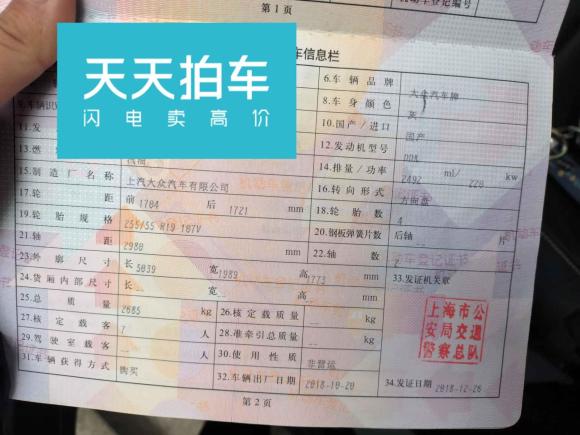 第 1 页
机动车登记编号
车信息栏
天天拍车
闪电卖高价
6.车辆品牌 大众汽车牌
8.车身颜色 灰
10.国产/进口 国产
12.发动机型号 DDK
14.排量/功率 2492 ml/ 220 kw
15.制造厂名称 上汽大众汽车有限公司
16.转向形式 方向盘
17.轮距 前 1704 后 1721 mm
18.轮胎数 4
19.轮胎规格 255/55 R19 107V
20.钢板弹簧片数 后轴 -- 片
21.轴距 2980 mm
22.轴数 2
23.外廓尺寸 长 5039 宽 1989 高 1773 mm
33.发证机关章
24.货厢内部尺寸 长 -- 宽 -- 高 -- mm
25.总质量 2685 kg
26.核定载质量 -- kg
27.核定载客 7 人
28.准牵引总质量 -- kg
29.驾驶室载客 -- 人
30.使用性质 非营运
31.车辆获得方式 购买
32.车辆出厂日期 2018-10-20
34.发证日期 2018-12-26
上海市公
安局交通
警察总队
第 2 页